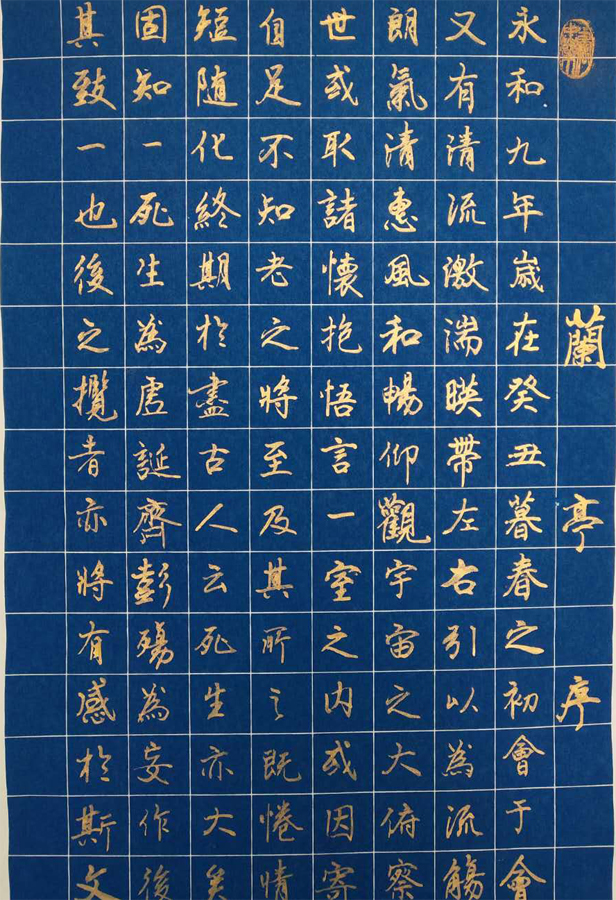 蘭亭序
永和九年歲在癸丑暮春之初會于會
又有清流激湍暎帶左右引以為流觴
朗氣清惠風和暢仰觀宇宙之大俯察
世或取諸懷抱悟言一室之内或因寄
自足不知老之將至及其所之既惓情
短隨化終期於盡古人云死生亦大矣
固知一死生為虛誕齊彭殤為妄作後
其致一也後之攬者亦將有感於斯文